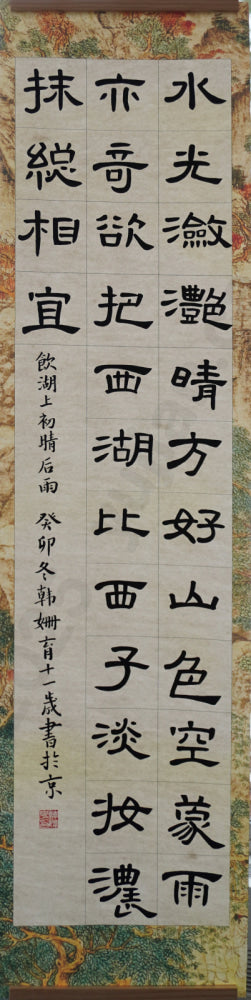 水光瀲灧晴方好山色空蒙雨
亦奇欲把西湖比西子淡妆濃
抹總相宜
飲湖上初晴后雨 癸卯冬韓姗育十一歲書於京